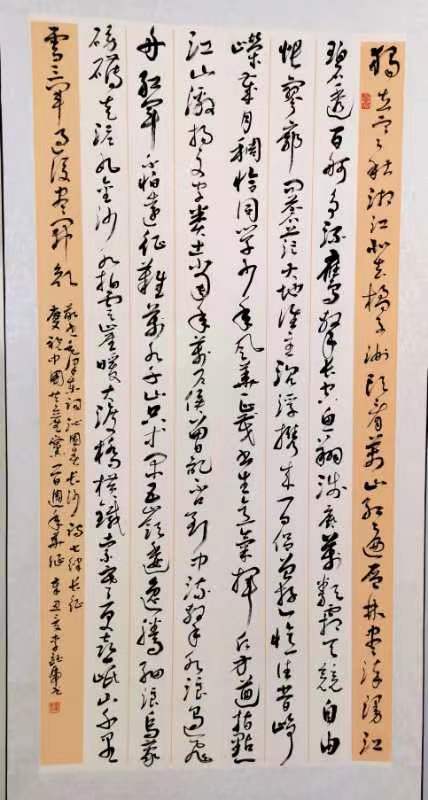 獨立寒秋湘江北去橘子洲頭看萬山紅遍層林盡染漫江
碧透百舸争流鷹擊長空魚翔淺底萬類霜天競自由
悵寥廓問蒼茫大地誰主沉浮携来百侣曾游憶往昔崢
嶸歲月稠恰同學少年風華正茂書生意氣揮斥方遒指點
江山激揚文字糞土當年萬户侯曾記否到中流擊水浪遏飛
舟紅軍不怕遠征難萬水千山只等閑五嶺逶迤騰細浪烏蒙
磅礴走泥丸金沙水拍雲崖暖大渡橋横鐵索寒更喜岷山千里
雪三軍過後盡開顔
敬書毛澤東詞沁園春長沙詩七律長征
慶祝中國共產黨一百週年華誕 辛丑夏李